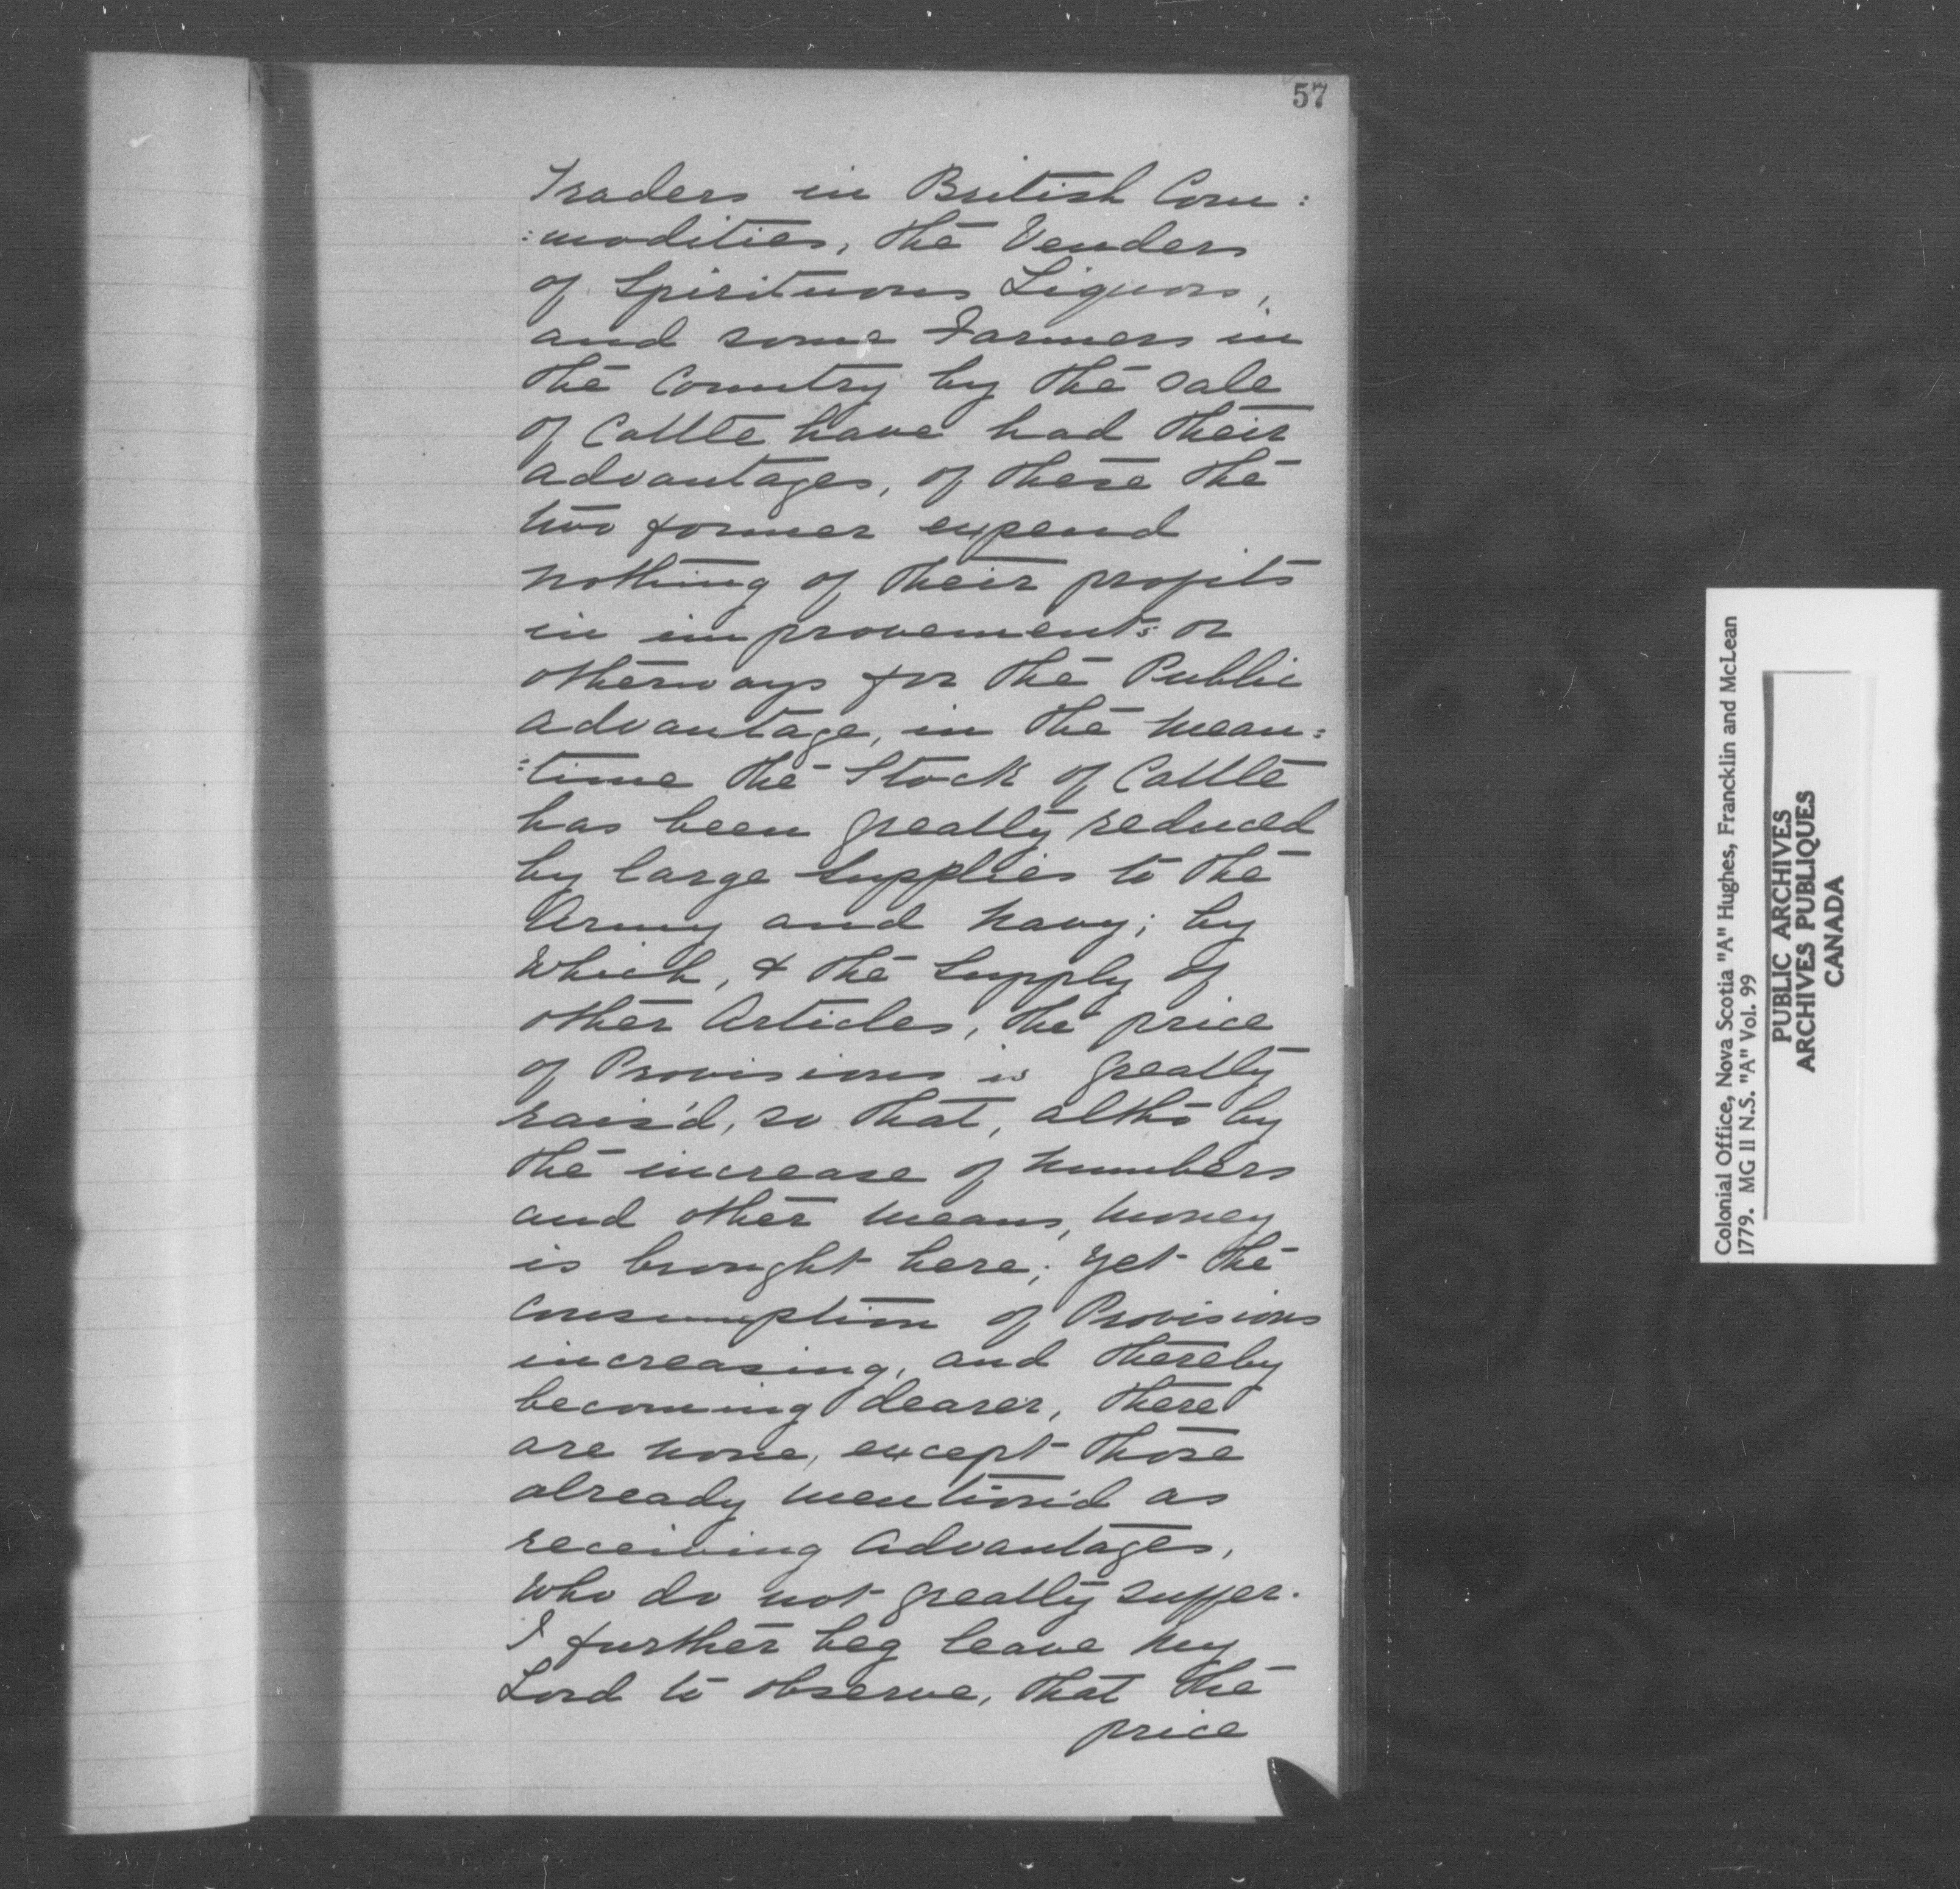 57
Traders in British Com:
:modities, the Venders
of Spirituous Liquors,
and some Farmers in
the Country by the sale
of Cattle have had their
advantages, of these the
two former expend
nothing of their profits
in improvements or
otherways for the Public
advantage, in the mean:
:time the Stock of Cattle
has been greatly reduced
by large Supplies to the
Army and Navy; by
which, & the Supply of
other Articles, the price
of Provisions is greatly
rais'd, so that, altho' by
the increase of Numbers
and other means, money
is brought here; yet the
Consumption of Provisions
increasing, and thereby
becoming dearer, there
are none, except those
already mention'd as
receiving advantages,
who do not greatly suffer.
I further beg leave my
Lord to observe, that the
price
Colonial Office, Nova Scotia "A" Hughes, Francklin and McLean
1779. MG II N.S. "A" Vol. 99
PUBLIC ARCHIVES
ARCHIVES PUBLIQUES
CANADA